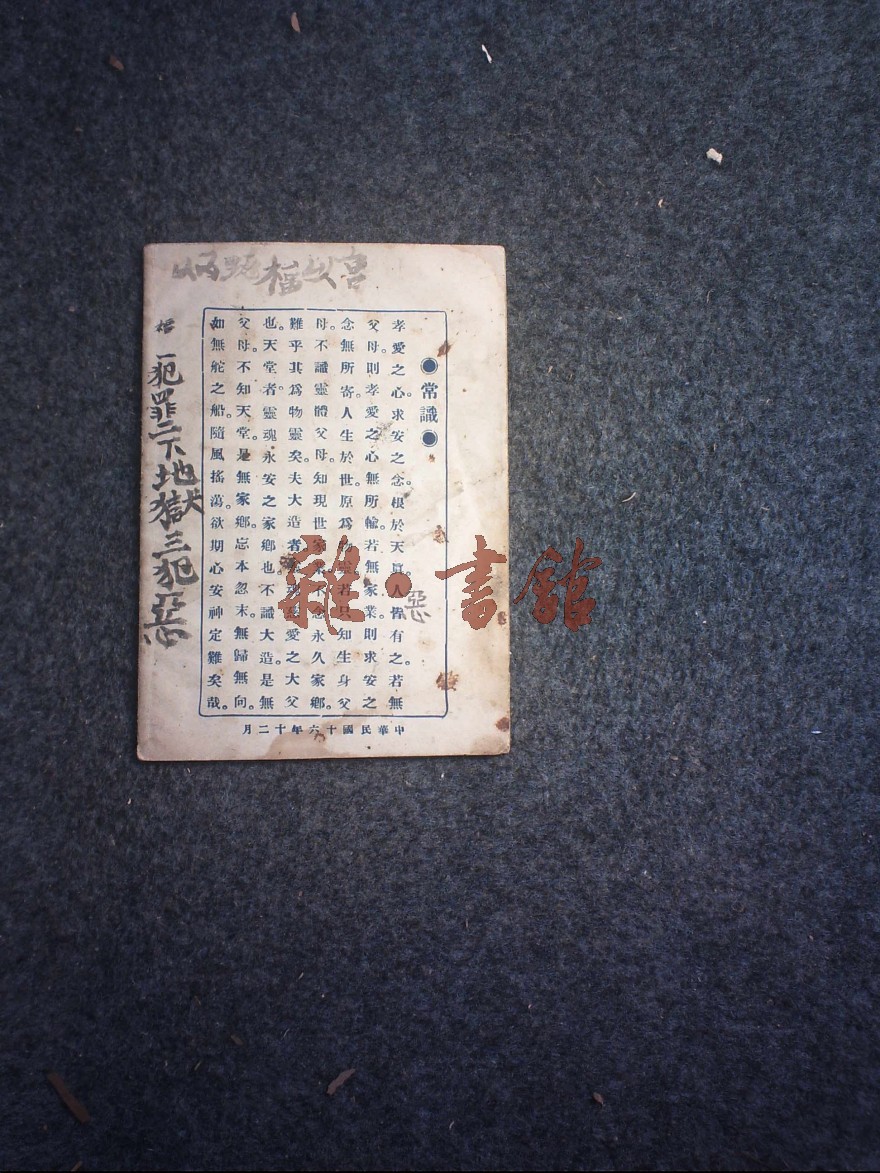 ●常識●
孝愛之心。求安之念。根於天真。人皆有之。若無
父母。則孝愛之心無所輸。若無家業。則求安之
念無所寄。人生於世。原爲物靈。若只知生身父
母。不識靈體父母。知現世家業。不念永久家鄉。
難乎其爲物靈矣。夫大造者。魂慈愛之大父
也。天堂者。靈魂永安之家鄉也。不識大造。是無
父母。不知天堂。是無家鄉。忘本忽末。無歸無向。
如無舵之船。隨風搖蕩。欲期心安神定難矣哉。
中華民國十六年十二月
一犯罪二下地獄三犯惡
惡
雜·書館